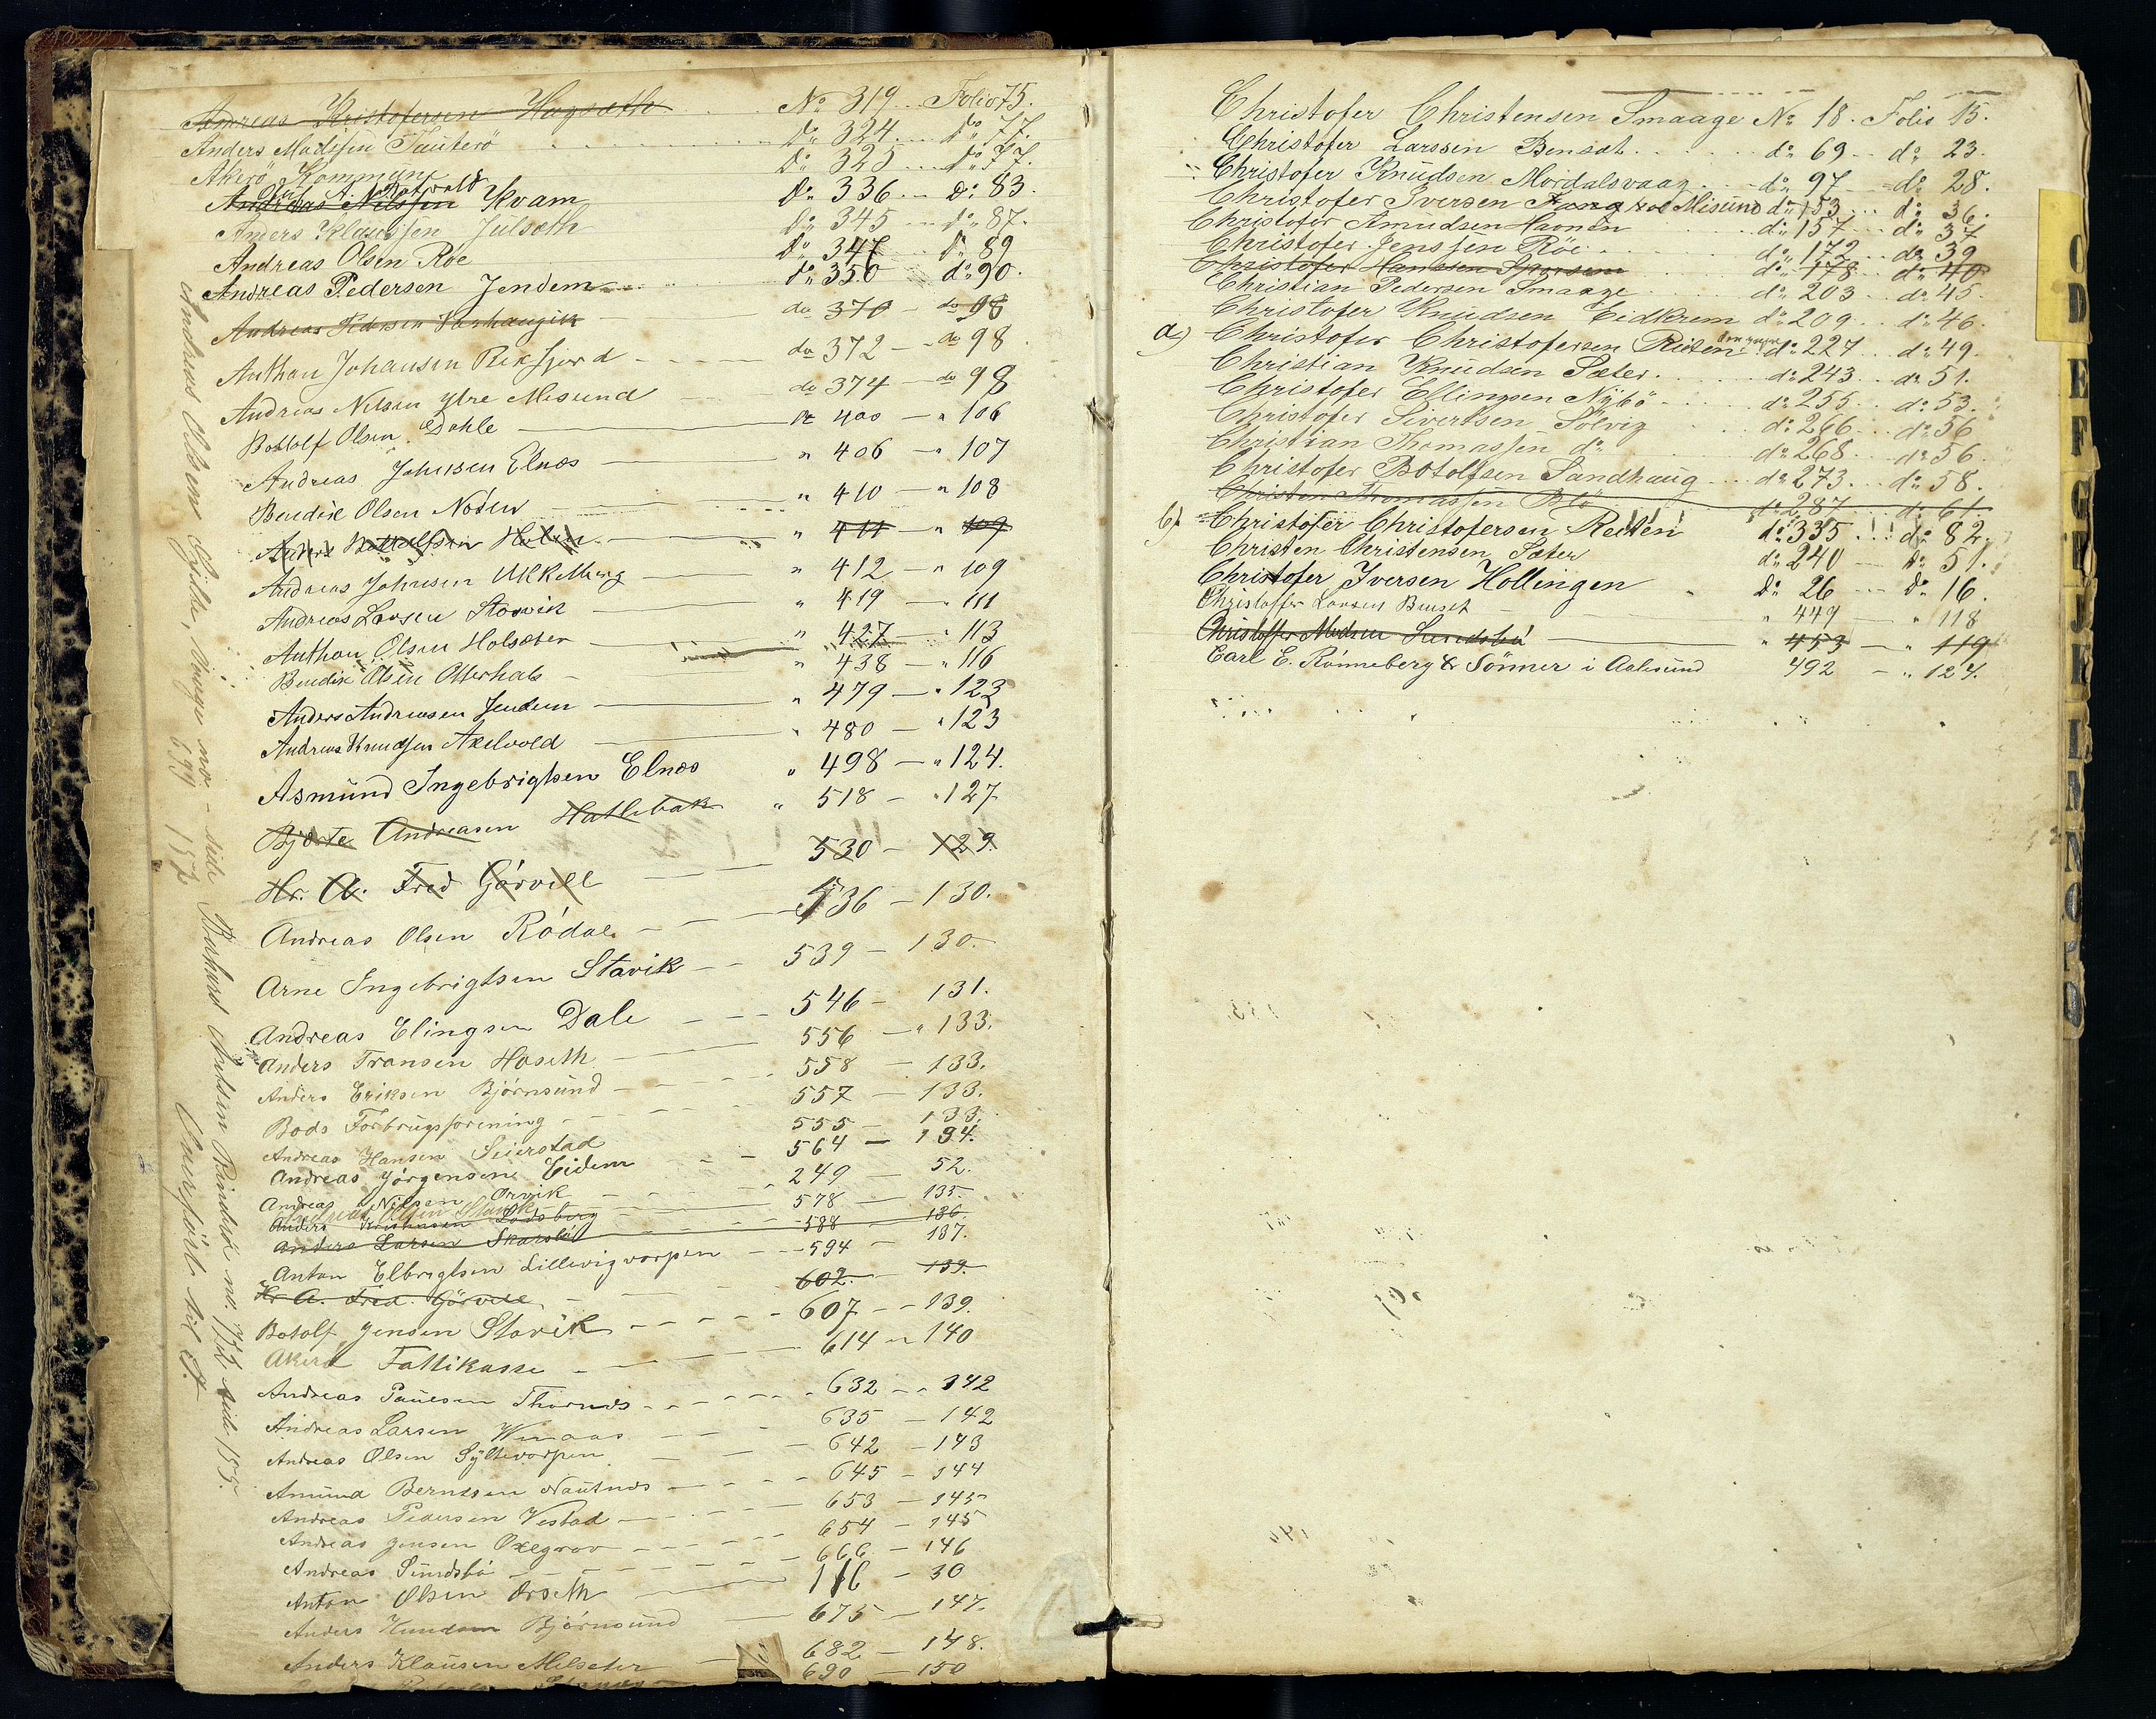 Andreas Kristofersen Hagsæth No 319 Folio 75.
Anders Madssen Tauterö do 324 do 77.
Akerö Kommune do 325 do 77.
Ole A. Nordtvold
Andreas Nilssen Kvam Do 336 Do 83.
Anders Klaussen Julsæth do 345 do 87.
Andreas Olsen Röe do 347 do 89
Andreas Pedersen Jendem do 350 do 90.
Andreas Pedersen Varhaugvik do 370 do 98
Anthon Johansen Rekfjord do 372 do 98
Andreas Nilsen ytre Misund do 374 do 98
Bottolf Olsen Dahle do 400 " 106
Andreas Johnsen Elnæs " 406 " 107
Bendik Olsen Nösen " 410 " 108
Anders Holen " 411 " 109
Andreas Johnsen Mikkelberg " 412 " 109
Andreas Larsen Stavik " 419 " 111
Anthon Olsen Holsæter " 427 " 113
Bendik Olsen Otterhals " 438 " 116
Anders Andreasen Jendem " 479 " 123
Andreas Knudsen Axelvold " 480 " 123
Asmund Ingebrigtsen Elnæs " 498 " 124.
Bjerte Andreasen Hatlebak " 518 " 127
Hr. A. Fred Görvell 530 129.
Andreas Olsen Rödal 536 130.
Arne Ingebrigtsen Stavik 539 130.
Andreas Elingsen Dale 546 131.
Anders Fransen Hoseth 556 " 133.
Anders Eriksen Björnsund 558 133.
Bods Forbrugsforening 557 133.
Andreas Hansen Seierstad 555 133.
Andreas Jörgensen Eidem 564 134.
Andreas Nilsen Orvik 249 52.
Andreas Olsen Stavik
Anders Kristiansen Lodsberg 578 135.
Anders Larsen Skarsbö 588 136.
Anton Elbregtsen Lillevigvorpen 594 137.
Hr A. Fred. Görvell 602. 139.
Botolf Jensen Stavik 607 139.
Akerö Fattikasse 614 140
Andreas Paulsen Thornæs 632 142
Andreas Larsen 635 142
Andreas Olsen Syltevorpen 642 143
Amund Berntsen Nautnæs 645 144
Andreas Pedersen Vestad 653 145
Andreas Jensen Oxegrov 654 145
Andreas Sundsbö 666 146
Anton Olsen Orseth 116 30
Anders Björnsund 675 147.
Anders Klausen Melsæter 682 148.
690 150
Andreas Olsens Gjilde, Vaage no side
699 157
no. 712 side 155.
Overført til A
Christofer Christensen Smaage No 18. Folio 15.
Christofer Larssen Bensæt do 69 do 23.
Christofer Knudsen Mordalsvaag do 97 do 28.
Christofer Iversen Misund do 153 do 36.
Christofer Amundsen Haonen do 157 do 37
Christofer Jenssen Röe do 172 do 39
Christofer Hanssen do 178 do 40
Christian Pedersen Smaage do 203 do 45.
Christofer Knudsen Eidkrem do 209 do 46.
a) Christofer Christofersen Reiten den yngre do 227 do 49.
Christian Knudsen Sæter. do 243 do 51.
Christofer Ellingsen Nybö do 255 do 53.
Christofer Sivertsen Solvig do 266 do 56
Christian Thomassen do do 268 do 56.
Christofer Botolfsen Sandhaug do 273 do 58.
Christen Thomassen Bö do 287 do 61
b) Christofer Christofersen Reiten do 335 do 82.
Christen Christensen Sæter do 240 do 51.
Christofer Iversen Hollingen Do 26 Do 16.
Christoffer Larsen Bensæt " 449 " 118
Christoffer Madsen Sundsbö " 453 " 119
Carl E. Rönneberg & Sönner i Aalesund 492 " 124.
C
D
E
F
G
H
I
J
K
L
M
N
O